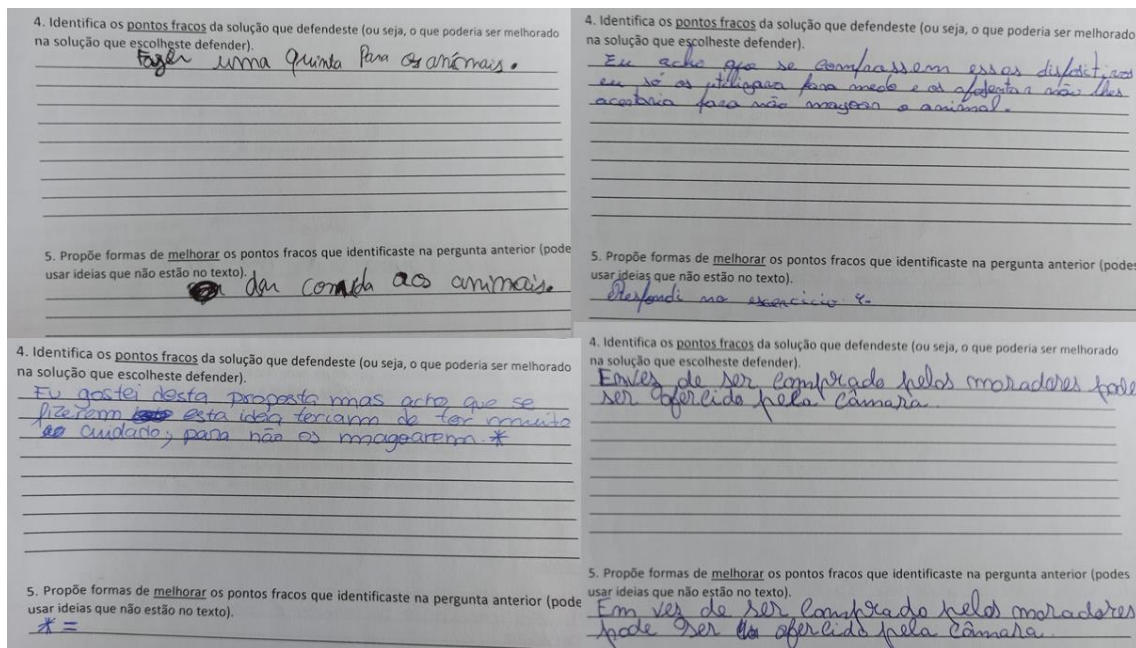 4. Identifica os pontos fracos da solução que defendeste (ou seja, o que poderia ser melhorado
na solução que escolheste defender).
Fazer uma quinta Para os animais.
5. Propõe formas de melhorar os pontos fracos que identificaste na pergunta anterior (pode
usar ideias que não estão no texto).
dar comida aos animais.
4. Identifica os pontos fracos da solução que defendeste (ou seja, o que poderia ser melhorado
na solução que escolheste defender).
Eu acho que se comprassem essos dispositivos
eu só os utilizava para medo e os afugentar não lhes
acertaria para não magoar o animal.
5. Propõe formas de melhorar os pontos fracos que identificaste na pergunta anterior (podes
usar ideias que não estão no texto).
Respondi no exercicio 4.
4. Identifica os pontos fracos da solução que defendeste (ou seja, o que poderia ser melhorado
na solução que escolheste defender).
Eu gostei desta proposta mas acho que se
fizerem esta ideia teriam de ter muito
cuidado, para não os magoarem. *
5. Propõe formas de melhorar os pontos fracos que identificaste na pergunta anterior (pode
usar ideias que não estão no texto).
* =
4. Identifica os pontos fracos da solução que defendeste (ou seja, o que poderia ser melhorado
na solução que escolheste defender).
Envés de ser comprado pelos moradores pode
ser ofercido pela câmara.
5. Propõe formas de melhorar os pontos fracos que identificaste na pergunta anterior (podes
usar ideias que não estão no texto).
Em ves de ser comprado pelos moradores
pode ser ofercido pela câmara.